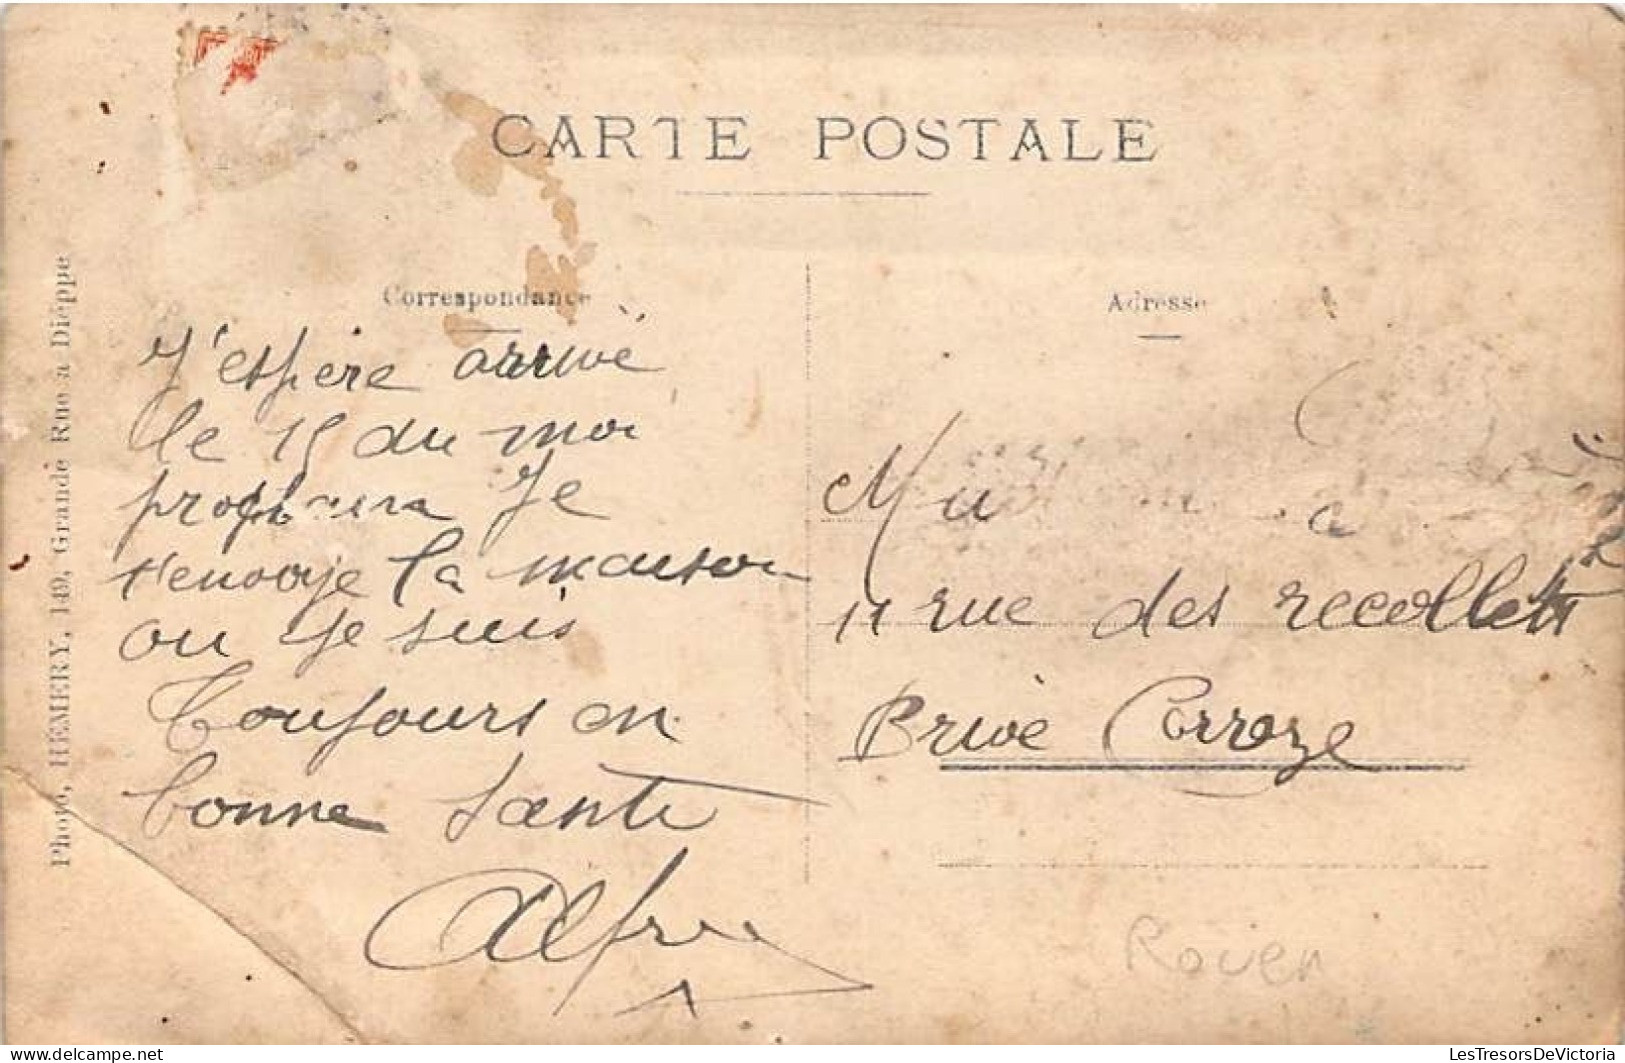 CARTE POSTALE
Correspondance
J'espère arrivé
le 15 du moi
Je
t'envoye la maison
ou je suis
Toujours en
bonne santé
Alfred
Photo, HEMERY, 149, Grande Rue a Dieppe
Adresse
11 rue des recollets
Brive Corrèze
Rouen
LesTresorsDeVictoria